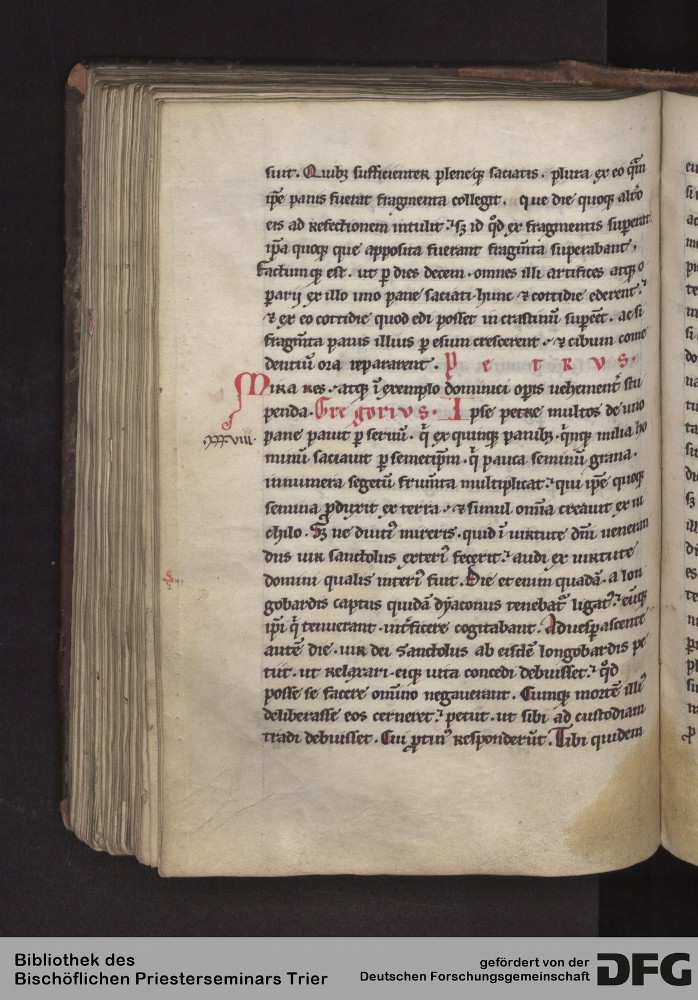 fuit. Quibꝫ sufficienter pleneqꝫ saciatis. plura ex eo qͣm
ip̄e panis fuerat fragmenta collegit. que die quoqꝫ alt̄o
eis ad refectionem intulit. sꝫ id qd̄ ex fragmentis supererat
ip̄a quoqꝫ que apposita fuerant fragm̄ta superabant.
Factumqꝫ est. ut ꝑ dies decem. omnes illi artifices atqꝫ o
perarij ex illo uno pane saciati. hunc ⁊ cottidie ederent.
⁊ ex eo cottidie quod edi posset in crastinū supeēt. ac si
fragm̄ta panis illius ꝑ esum crescerent. ⁊ cibum come
dentiū ora repararent. Petrvs.
Mira res. atqꝫ ī exemplo dominici opis uehement̄ stu
penda. Gregorivs. Ipse petre multos de uno
xxxviii.
pane pauit ꝑ seruū. q̇ ex quinqꝫ panibꝫ. q̇nqꝫ milia ho
minū saciauit ꝑ semetip̄m. q̇ pauca seminū grana.
innumera segetū frum̄ta multiplicat. qui ip̄e quoqꝫ
semina ꝓduxit ex terra. ⁊ simul om̄ia creauit ex ni
chilo. Sꝫ ne diuti᷒ mireris. quid ī uirtute dn̄i ueneran
dus uir sanctolus exteri᷒ fecerit. audi ex uirtute
domini qualis interi᷒ fuit. Die etenim quadā. a lon
gobardis captus quidā dyaconus tenebat᷑ ligat᷒. eūqꝫ
ip̄i q̇ tenuerant. int̄ficere cogitabant. Aduesꝑascente
autē die. uir dei sanctolus ab eisdē longobardis pe
tiit. ut relaxari. eiqꝫ uita concedi debuisset. qd̄
posse se facere om̄ino negauerant. Cumqꝫ mortē illi᷒
deliberasse eos cerneret. petiit. ut sibi ad custodiam
tradi debuisset. Cui ꝓtin᷒ responderūt. Tibi quidem
Bibliothek des
Bischöflichen Priesterseminars Trier
gefördert von der
Deutschen Forschungsgemeinschaft
DFG